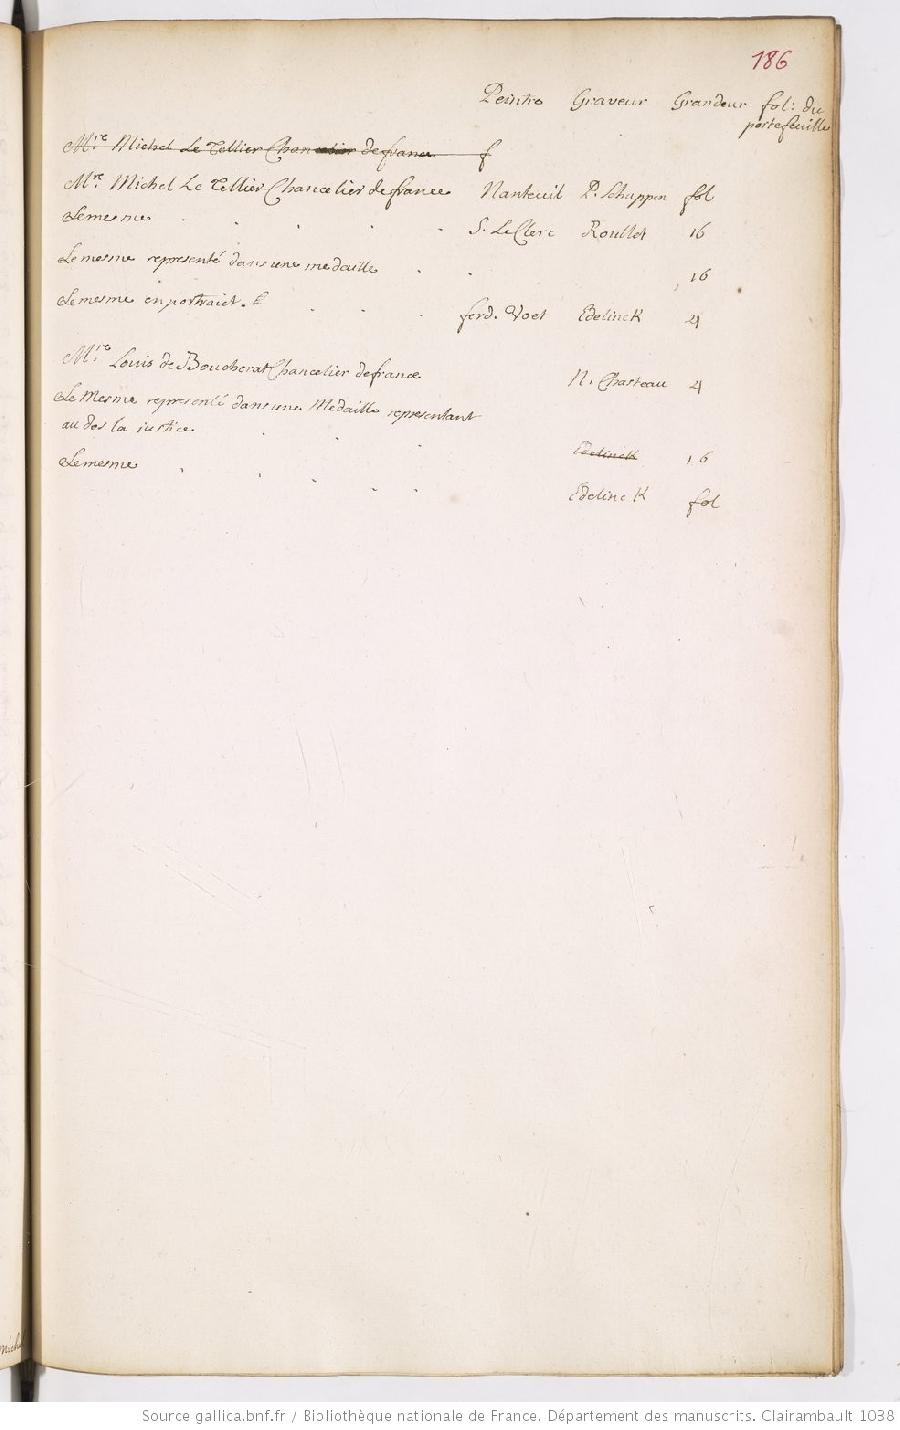 186
Peintre Graveur Grandeur fol: du
portefeuille
Mre Michel Le Tellier Chancelier de france f
Mre Michel Le Tellier Chancelier de france Nanteuil P. Schuppen fol
Le mesme S. Le Clerc Roullet 16
Le mesme representé dans une medaille 16
Le mesme en portraict. ferd. Voet Edelinck 4
Mre Louis de Boucherat Chancelier de france N. Chasteau 4
Le Mesme representé dans une Medaille representant
au dos la justice. Edelinck 16
Le mesme Edelinck fol
Mich
Source gallica.bnf.fr / Bibliothèque nationale de France. Département des manuscrits. Clairambault 1038